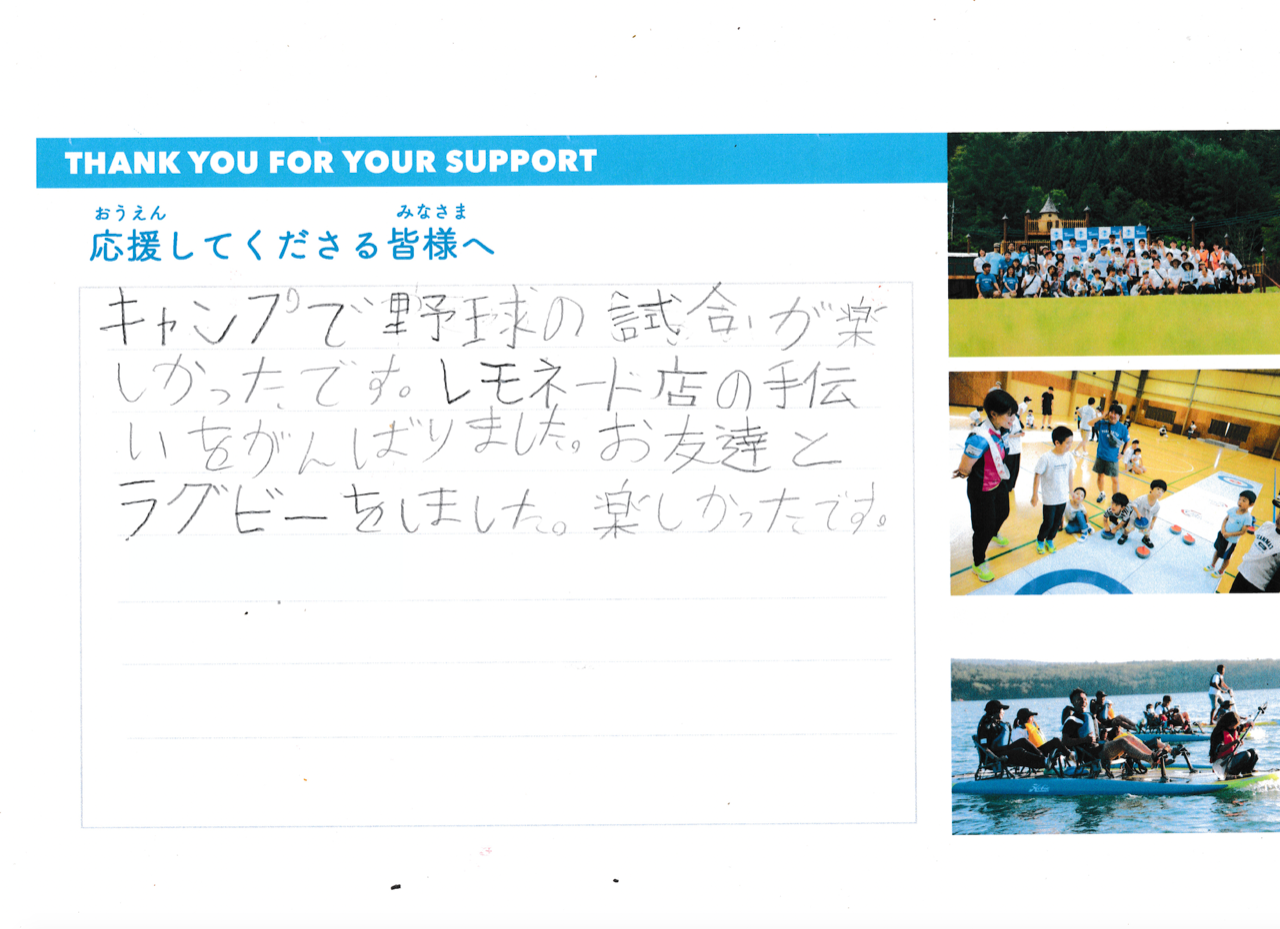 THANK YOU FOR YOUR SUPPORT
おうえん みなさま
応援してくださる皆様へ
キャンプで野球の試合が楽
しかったです。レモネード店の手伝
いをがんばりました。お友達と
ラグビーをしました。楽しかったです。